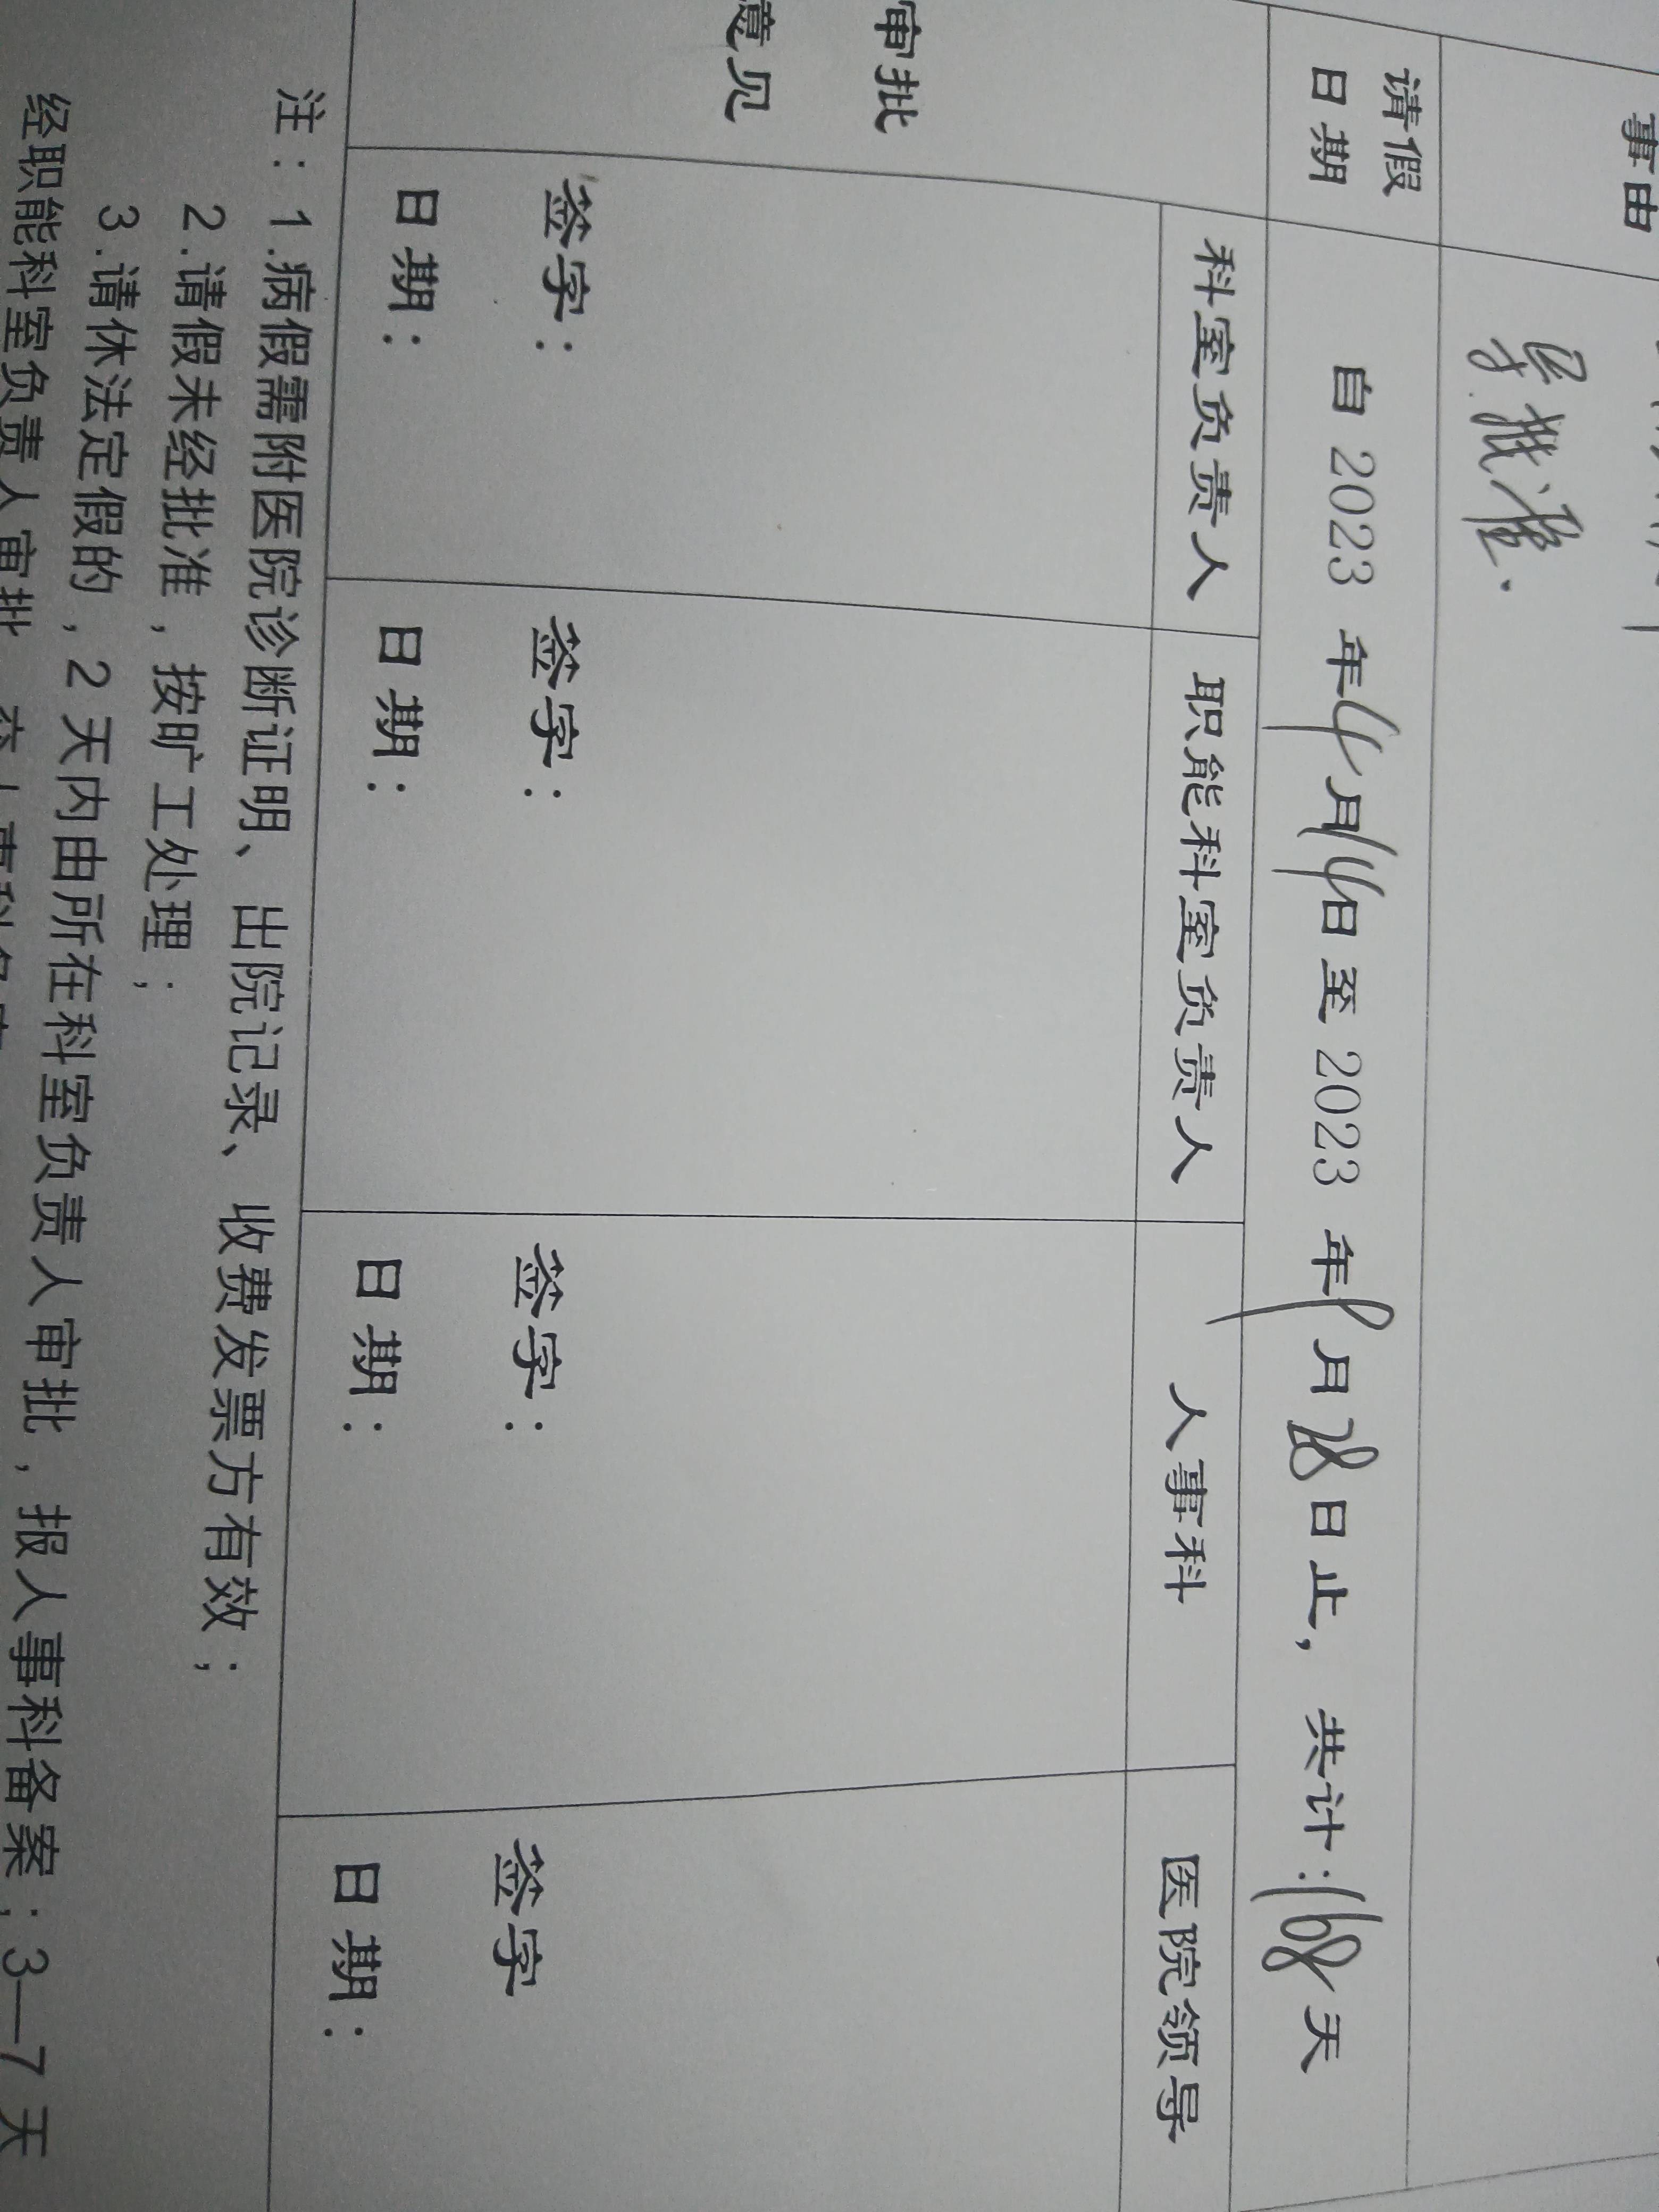 事由
望批准.
请假
日期
自 2023 年4月14日至 2023 年9月28日止，共计:168天
审批
意见
科室负责人
职能科室负责人
人事科
医院领导
签字：
签字：
签字：
签字
日期：
日期：
日期：
日期：
注：1.病假需附医院诊断证明、出院记录、收费发票方有效；
2.请假未经批准，按旷工处理；
3.请休法定假的，2 天内由所在科室负责人审批，报人事科备案；3—7 天
经职能科室负责人审批